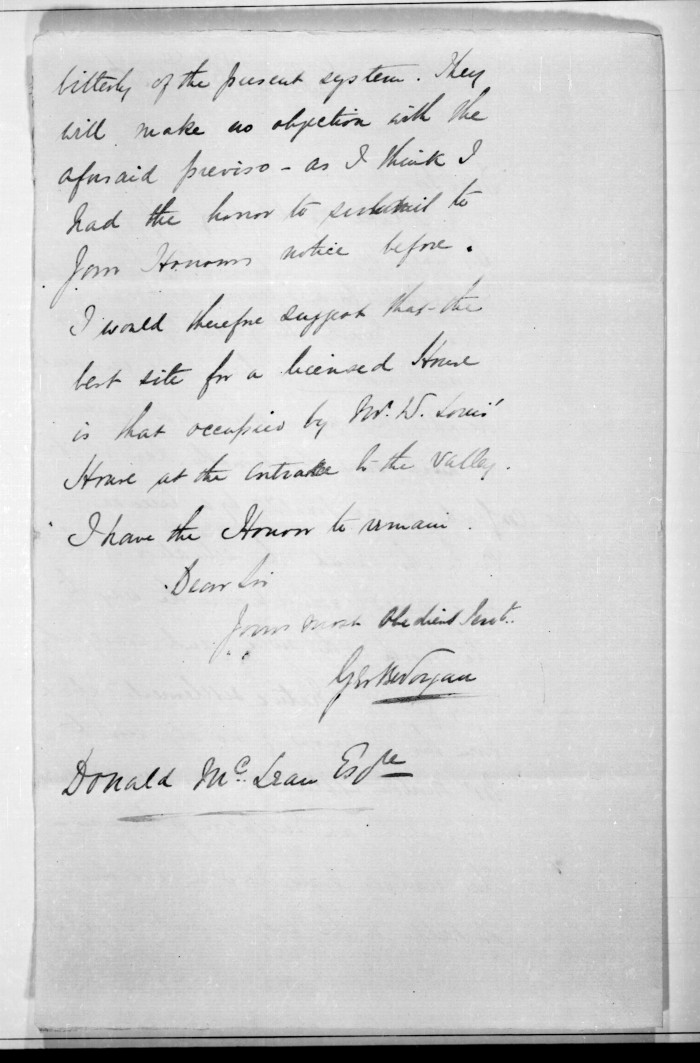 bitterly of the present system. They
will make no objection with the
aforsaid proviso - as I think I
had the honor to submit to
Your Honours notice before.
I would therefore suggest that the
best site for a licensed House
is that occupied by Mr. W. Louis'
House at the entrance to the Valley.
I have the Honour to remain.
Dear Sir
Yours most Obedient Servt.
Donald McLean Esqre